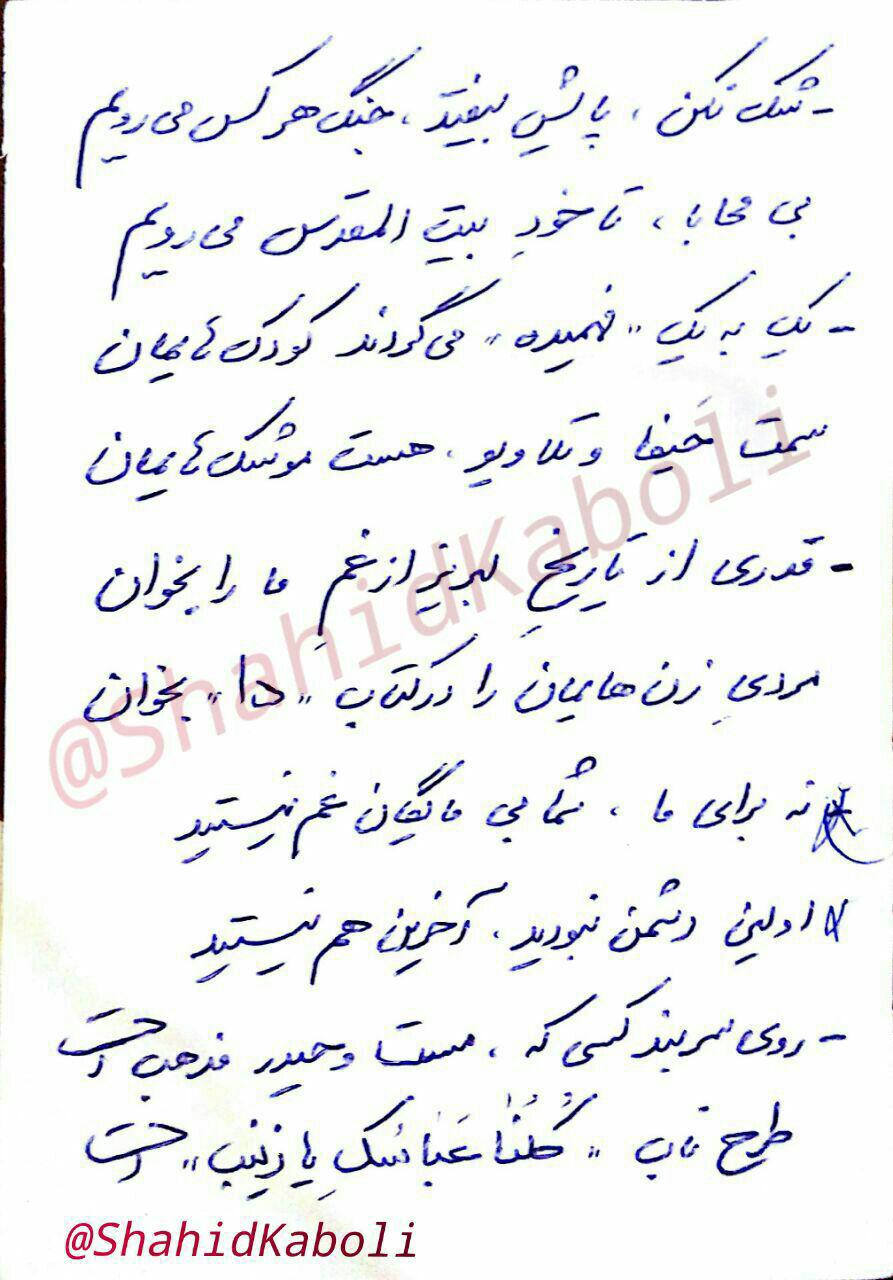 - شک نکن ، پایش بیفتد ، جنگ هر کس می رویم
بی محابا ، تا خودِ بیت المقدس می رویم
- یک به یک "فهمیده" می گردند کودک هایمان
سمت حَیفا و تلاویو ، هست موشک هایمان
- قدری از تاریخِ لبریز از غمِ ما را بخوان
مردیِ زن هایمان را در کتاب "دا" بخوان
نه برای ما ، شما بی مایگان غم نیستید
اولین دشمن نبودید ، آخرین هم نیستید
- روی سربند کسی که ، مست و حیدر مذهب است
طرح ناب "کُلُّنا عَبّاسُکِ یا زینب" است
@ShahidKaboli
@ShahidKaboli